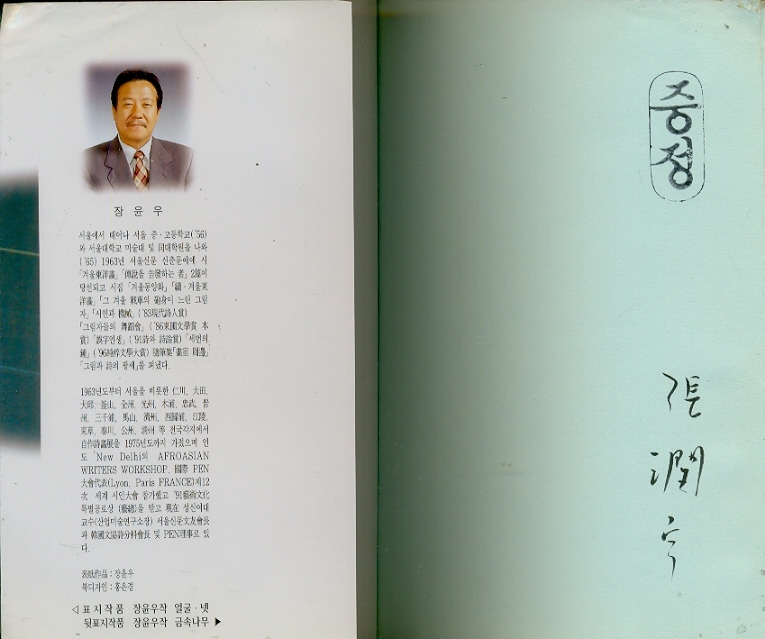 장 윤 우
서울에서 태어나 서울 중·고등학교('56)
와 서울대학교 미술대 및 同대학원을 나와
('65) 1963년 서울신문 신춘문예에 시
「겨울東洋畵」「傳說을 告發하는 者」 2篇이
당선되고 시집 「겨울동양화」「續·겨울東
洋畵」「그 겨울 戰車의 砲身이 느린 그림
자」「시인과 機械」('83現代詩人賞)
「그림자들의 舞蹈會」('86東圃文學賞 本
賞)「誤字인생」('91詩와 詩論賞)「세번의
鐘」('96純粹文學大賞) 隨筆集「畵室 周邊」
「그림과 詩의 팡세」를 펴냈다.
1963년도부터 서울을 비롯한 仁川, 大田,
大邱, 釜山, 全州, 光州, 木浦, 忠武, 晋
州, 三千浦, 馬山, 濟州, 西歸浦, 江陵,
束草, 春川, 公州, 淸州 等 전국각지에서
自作詩畵展을 1975년도까지 가졌으며 인
도 'New Delhi의 AFROASIAN
WRITERS WORKSHOP, 國際 PEN
大會代表(Lyon, Paris FRANCE)제12
次 세계 시인大會 참가했고 '91藝術文化
특별공로상 (藝總)을 받고 現在 성신여대
교수(산업미술연구소장) 서울신문文友會長
과 韓國文協詩分科會長 및 PEN理事로 있
다.
表紙作品 : 장윤우
북디자인 : 홍은경
◁ 표지작품 장윤우작 얼굴·넷
뒷표지작품 장윤우작 금속나무 ▶
증정
張
潤
宇